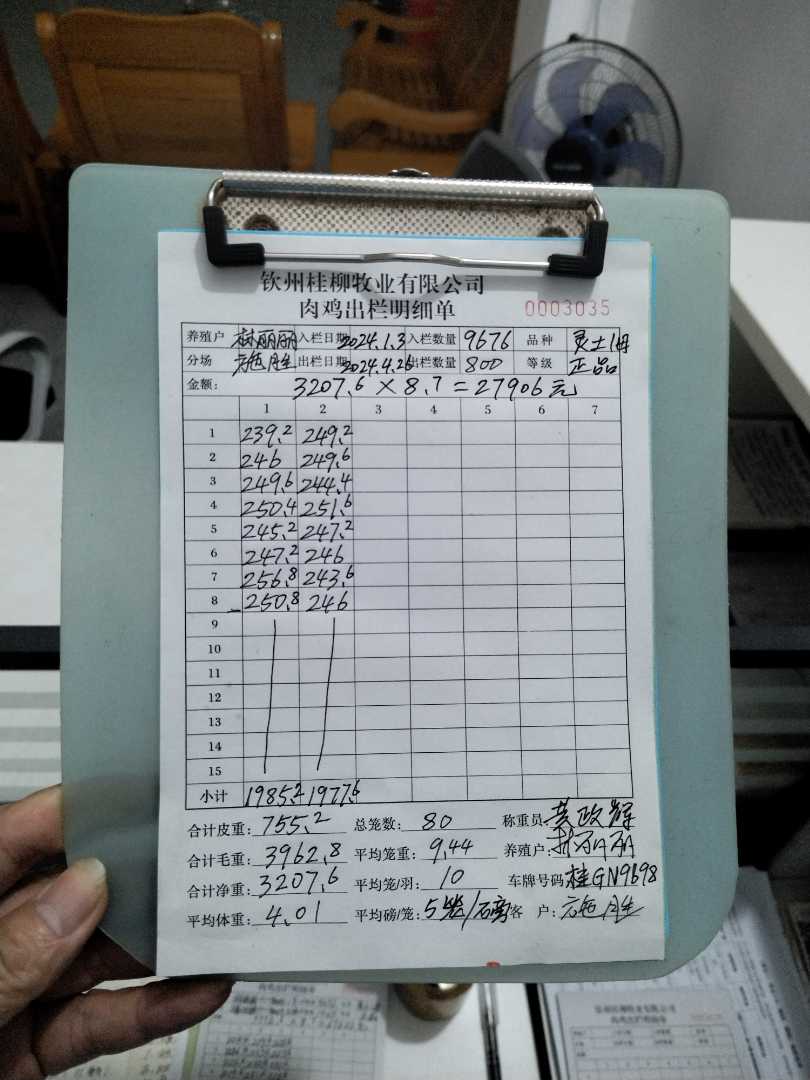 钦州桂柳牧业有限公司
肉鸡出栏明细单 0003035
养殖户 丽丽 入栏日期 2024.1.3 入栏数量 9676 品种 灵土1母
分场 施胜 出栏日期 2024.4.26 出栏数量 800 等级 正品
金额: 3207.6 × 8.7 = 27906元
1 2 3 4 5 6 7
1 239.2 249.2
2 246 249.6
3 249.6 244.4
4 250.4 251.6
5 245.2 247.2
6 247.2 246
7 256.8 243.6
8 250.8 246
9
10
11
12
13
14
15
小计 1985.2 1977.6
合计皮重: 755.2 总笼数: 80 称重员: 黄政辉
合计毛重: 3962.8 平均笼重: 9.44 养殖户: 丽丽
合计净重: 3207.6 平均笼/羽: 10 车牌号码 桂GN9698
平均体重: 4.01 平均磅/笼: 5笼/磅 客 户: 施胜